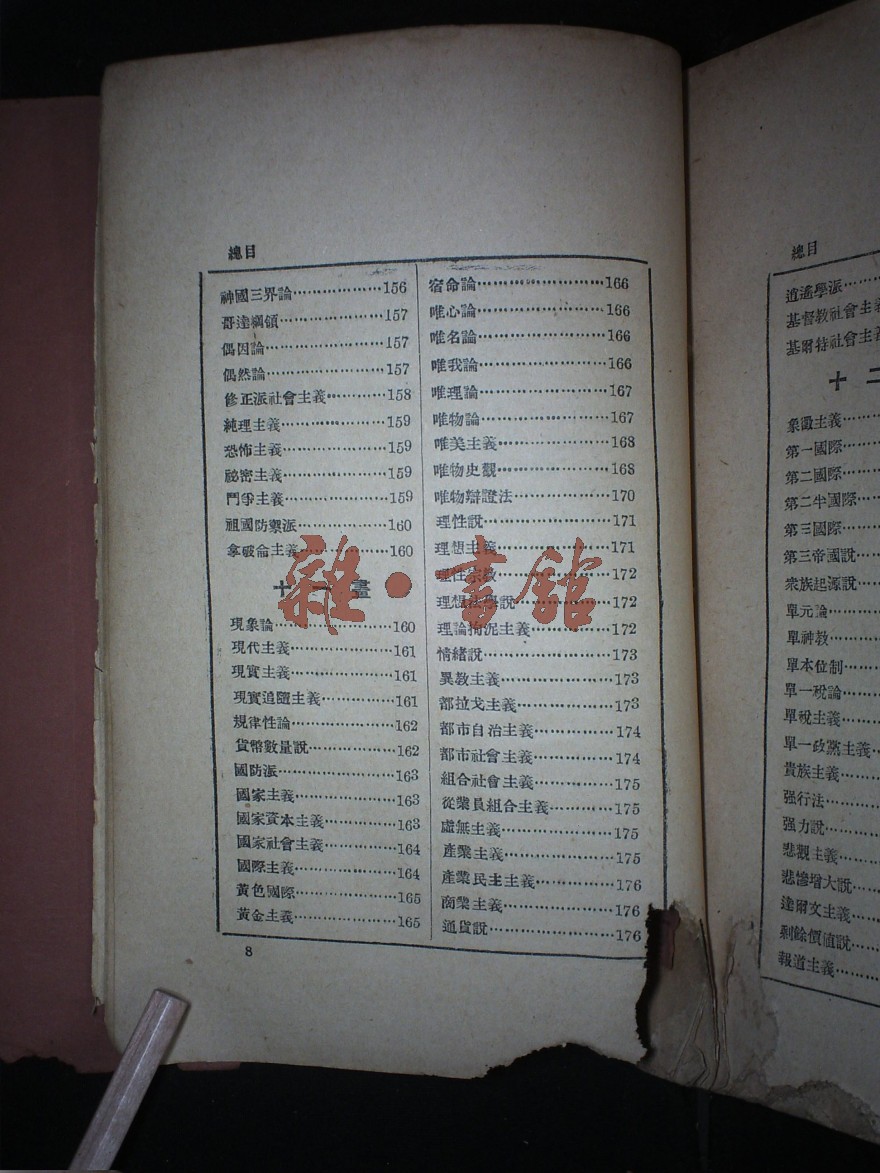 總目
神國三界論………………156
哥達綱領………………157
偶因論………………157
偶然論………………157
修正派社會主義…………158
純理主義………………159
恐怖主義………………159
祕密主義………………159
鬥爭主義………………159
祖國防禦派………………160
拿破侖主義………………160
十一畫
現象論………………160
現代主義………………161
現實主義………………161
現實追隨主義…………161
規律性論………………162
貨幣數量說……………162
國防派………………163
國家主義………………163
國家資本主義…………163
國家社會主義…………164
國際主義………………164
黃色國際………………165
黃金主義………………165
宿命論………………166
唯心論………………166
唯名論………………166
唯我論………………166
唯理論………………167
唯物論………………167
唯美主義………………168
唯物史觀………………168
唯物辯證法……………170
理性說………………171
理想主義………………171
理性宗教………………172
理想法學說……………172
理論拘泥主義…………172
情緒說………………173
異教主義………………173
都拉戈主義……………173
都市自治主義…………174
都市社會主義…………174
組合社會主義…………175
從業員組合主義………175
虛無主義………………175
產業主義………………175
產業民主主義…………176
商業主義………………176
通貨說………………176
8
雜·書館
總目
逍遙學派……
基督教社會主義
基爾特社會主義
十二
象徵主義……
第一國際……
第二國際……
第二半國際……
第三國際……
第三帝國說……
衆族起源說……
單元論……
單神教……
單本位制……
單一稅論……
單稅主義……
單一政黨主義…
貴族主義……
强行法……
强力說……
悲觀主義……
悲慘增大說……
達爾文主義……
剩餘價值說……
報道主義……